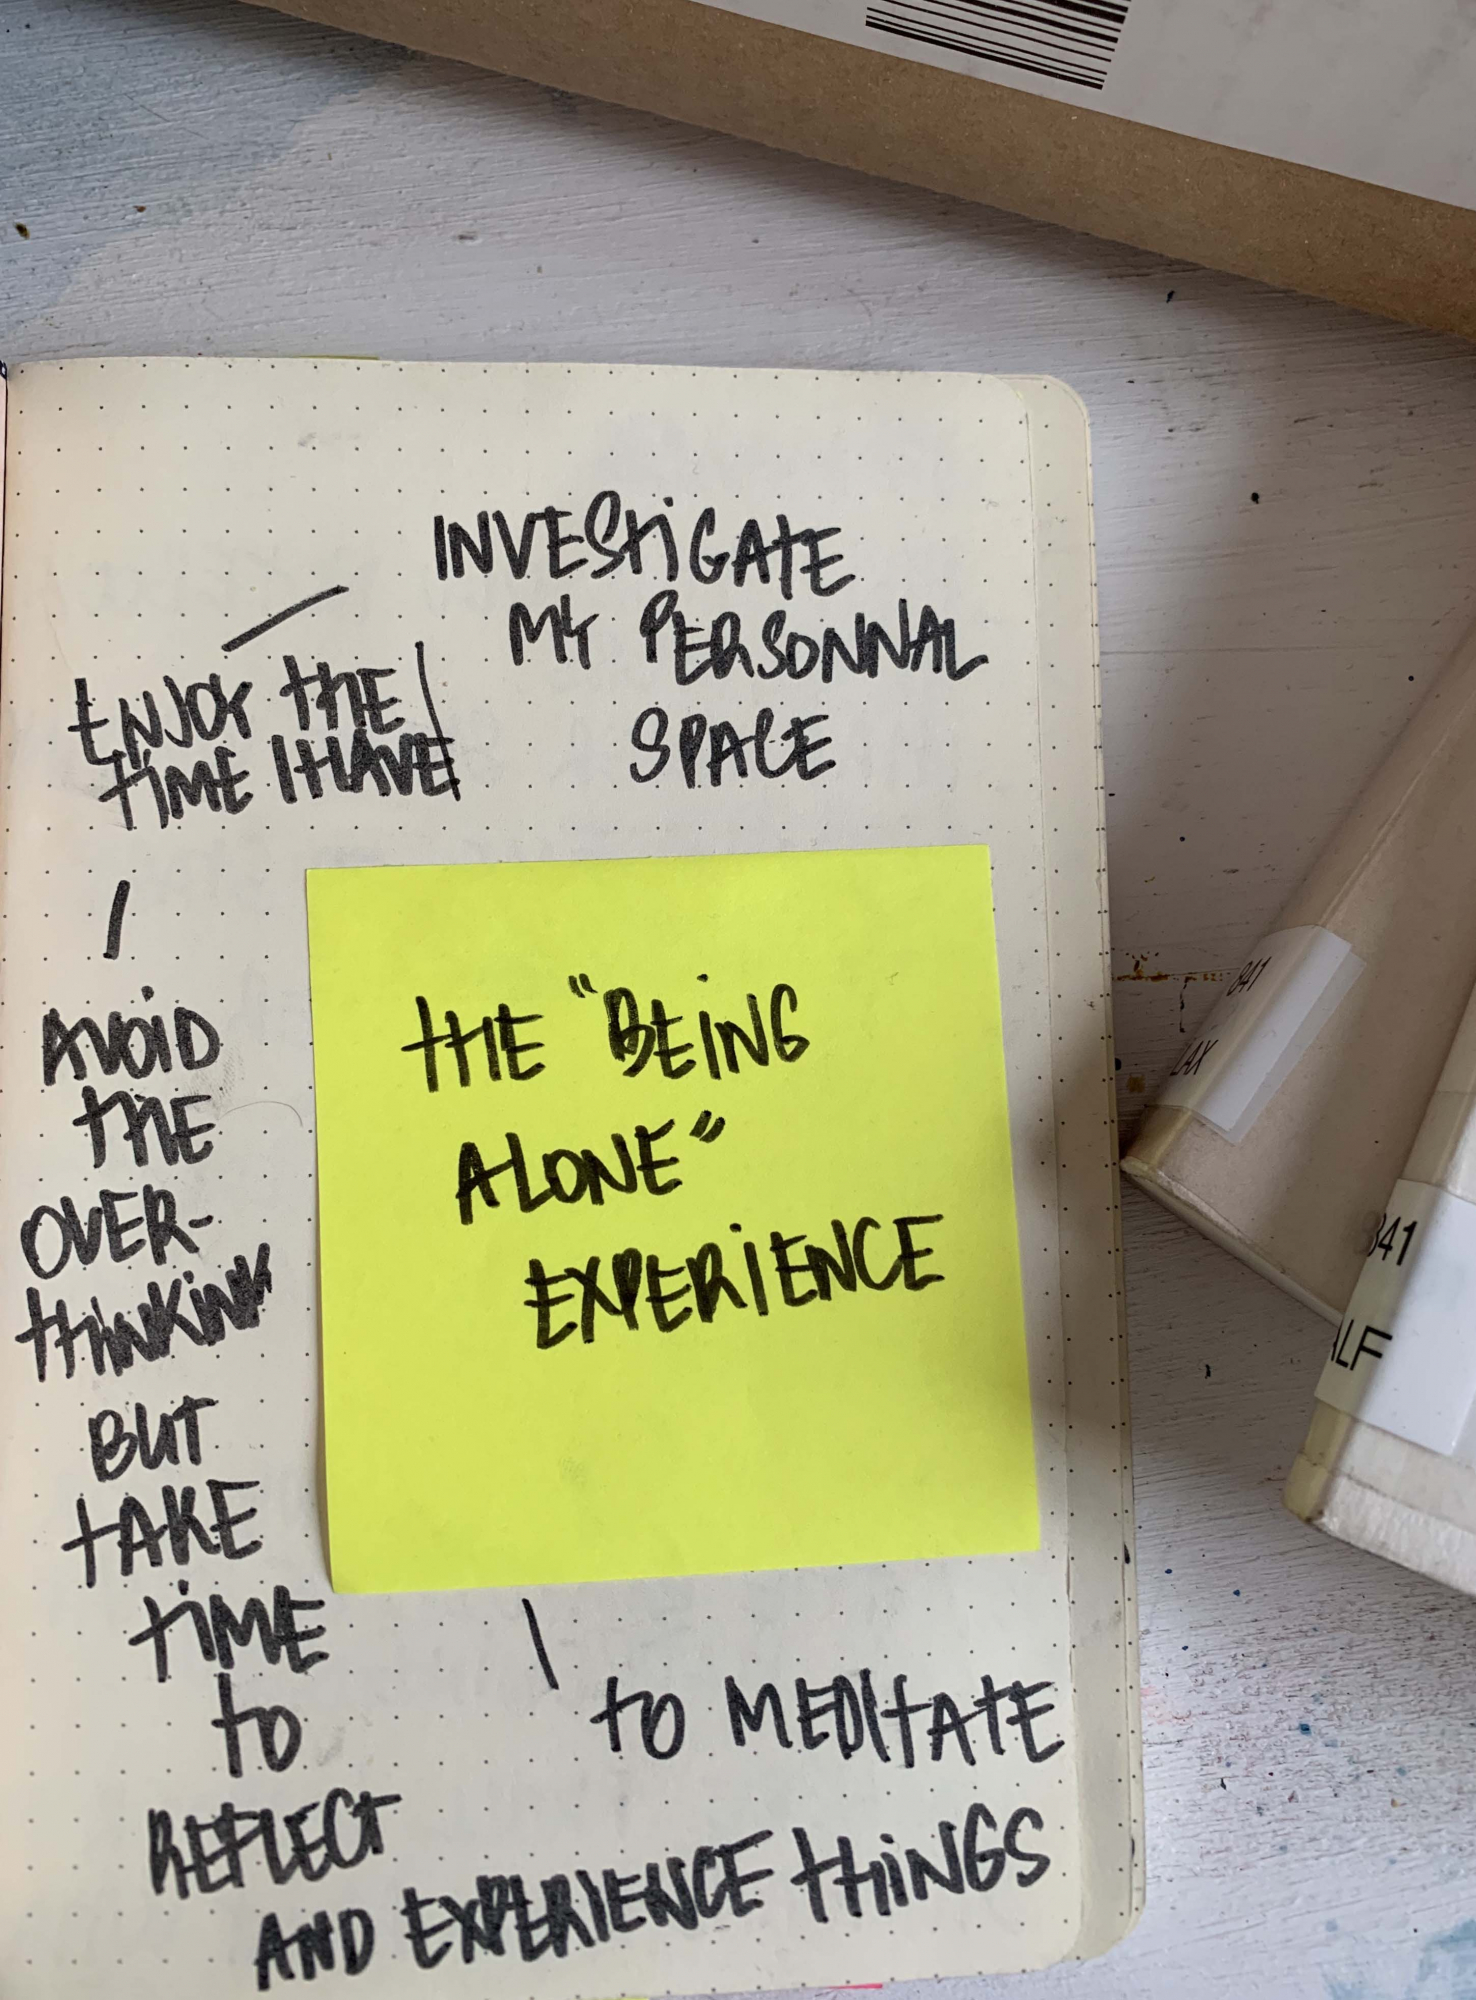 INVESTIGATE
MY PERSONNAL
SPACE
ENJOY THE
TIME I HAVE
THE "BEING
ALONE"
EXPERIENCE
AVOID
THE
OVER-
THINKINK
BUT
TAKE
TIME
TO
REFLECT
TO MEDITATE
AND EXPERIENCE THINGS
841
LAX
841
ALF